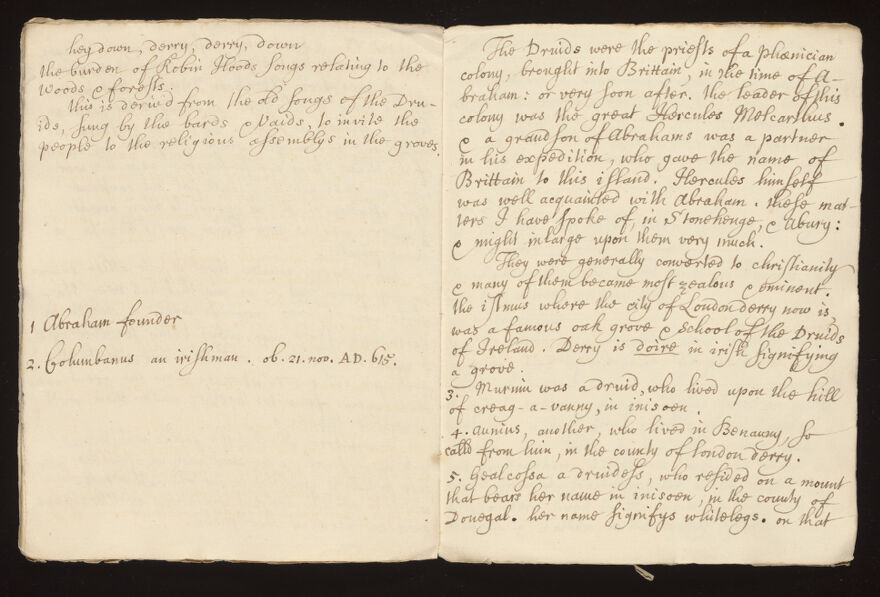 hey down, derry, derry, down
the burden of Robin Hoods songs relating to the
woods & forests.
this is derivd from the old songs of the Dru-
ids, sung by the bards & Vaids, to invite the
people to the religious assemblys in the groves.
1 Abraham founder
2. Columbanus an irishman. ob. 21. nov. AD. 615.
The Druids were the priests of a phœnician
colony, brought into Brittain, in the time of A-
braham: or very soon after. the leader of this
colony was the great Hercules Melcarthus.
& a grandson of Abrahams was a partner
in his expedition, who gave the name of
Brittain to this island. Hercules himself
was well acquainted with Abraham. these mat-
ters I have spoke of, in Stonehenge, & Abury:
& might inlarge upon them very much.
They were generally converted to christianity
& many of them became most zealous & eminent.
the istmus where the city of Londonderry now is,
was a famous oak grove & school of the Druids
of Ireland. Derry is doire in irish signifying
a grove.
3. Murnin was a druid, who lived upon the hill
of creag-a-vanny, in inisoen.
4. aunius, another, who lived in Benauny, so
calld from him, in the county of london derry.
5. Gealcossa a druidess, who resided on a mount
that bears her name in inisoen, in the county of
Donegal. her name signifys whitelegs. on that